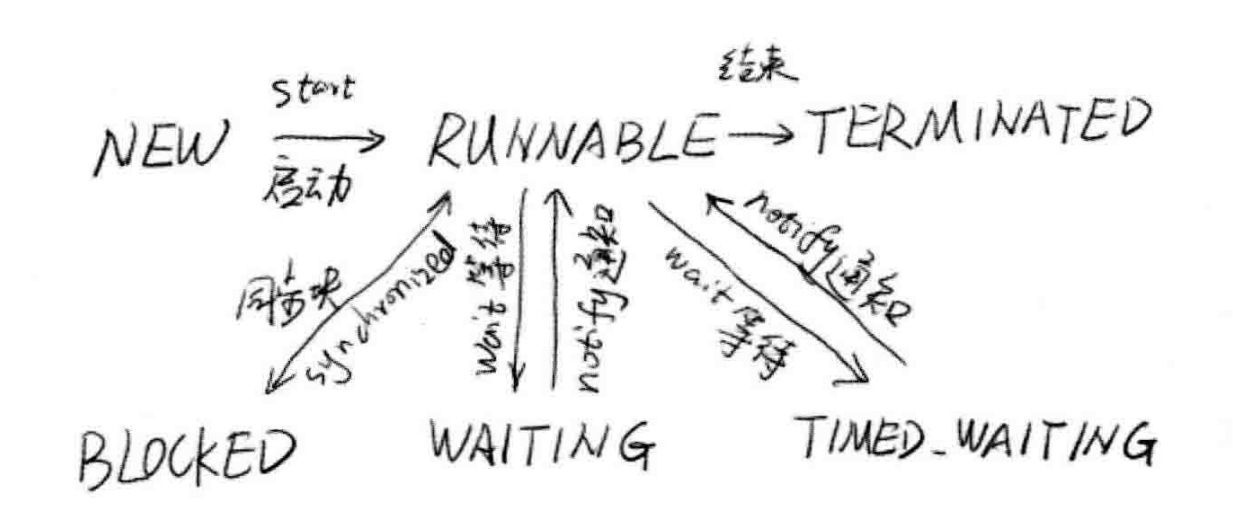 start
结束
NEW
RUNNABLE
TERMINATED
启动
同步块
synchronized
wait 等待
notify通知
wait 等待
notify通知
BLOCKED
WAITING
TIMED_WAITING